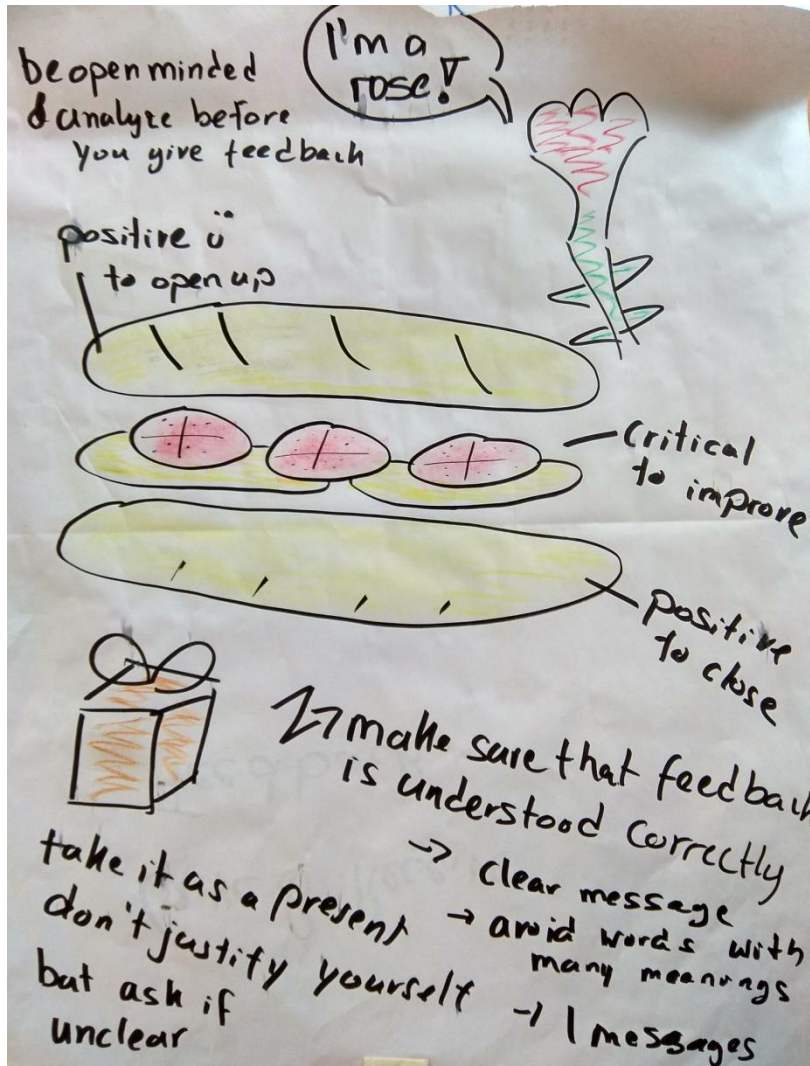 I'm a
rose!
be open minded
& analyze before
you give feedback
positive ü
to open up
critical
to improve
positive
to close
make sure that feedback
is understood correctly
→ clear message
→ avoid words with
many meanings
→ 1 messages
take it as a present
don't justify yourself
but ask if
unclear